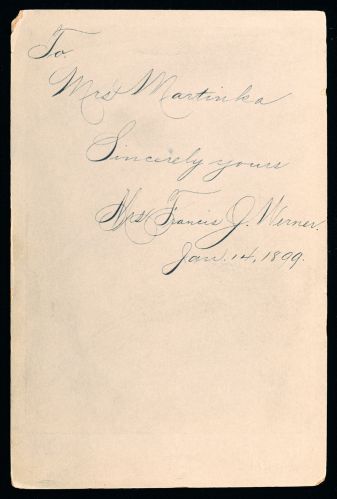 To.
Mrs. Martinka
Sincerely yours
Mrs. Francis J. Werner.
Jan. 14, 1899.